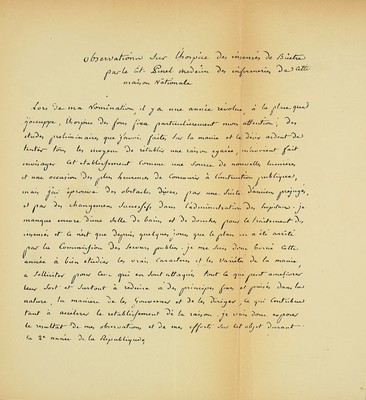 Observations sur l'hospice des insensés de Bicêtre
par le Ct. Pinel médecin des infirmeries de Cette
maison Nationale
Lors de ma Nomination, il y a une année révolue, à la place que
j'occuppe, l'hospice des fous fixa particulierement mon attention; des
études preliminaires que j'avois faites sur la manie et le désir ardent de
tenter tous les moyens de rétablir une raison egarée, m'avoient fait
envisager Cet etablissement comme une source de nouvelles lumieres
et une occasion des plus heureuses de Concourir à l'instruction publique,
mais j'ai éprouvé des obstacles divers, par une suite d'anciens préjugés,
et par des changemens successifs dans l'administration des hopitaux. je
manque encore d'une salle de bains et de douches pour le traitement des
insensés et ce n'est que depuis quelques jours que le plan en a été arrêté
par la Commission des secours publics. je me suis donc borné Cette
année à bien étudier les vrais Caracteres et les Variétés de la manie,
a solliciter pour Ceux qui en sont attaqués tout ce qui peut améliorer
leur sort et surtout à réduire à des principes fixes et puisés dans la
nature, la maniere de les Gouverner et de les diriger, ce qui Contribue
tant à accelerer le retablissement de la raison. je vais donc exposer
le resultat de mes observations et de mes efforts sur Cet objet durant
la 2e année de la Republique